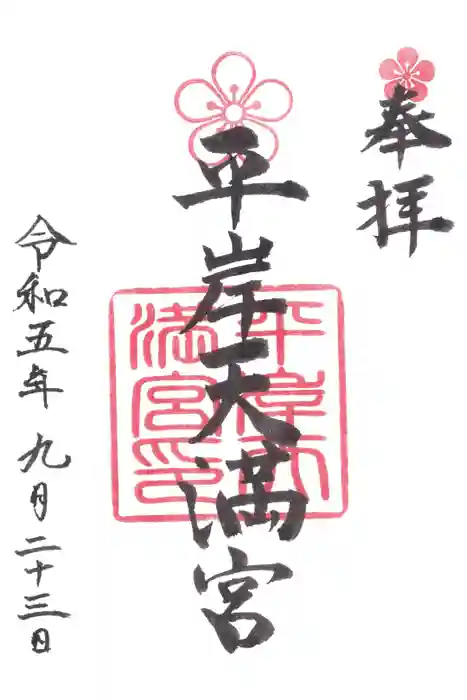 奉拝
平岸天満宮
平岸天満宮印
令和五年九月二十三日